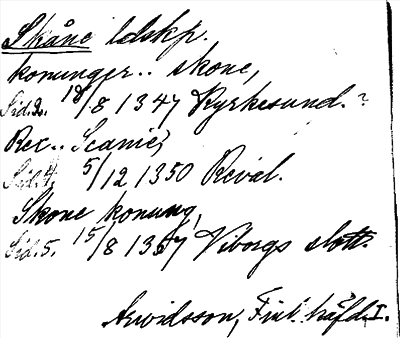 Skåne ldskp.
konunger.. skone,
Sid. 2. 18/8 1347 Kyrkesund.?
Rex.. Scanie,
Sid. 4. 5/12 1350 Reval.
Skone konung,
Sid. 5. 15/8 1357 Viborgs slott.
Arwidsson, Finl. häfd. I.